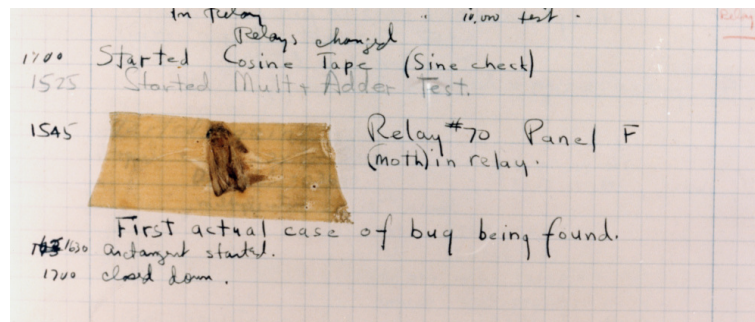 In Relay 10,000 test.
Relays changed
1700 Started Cosine Tape (Sine check)
1525 Started Mult + Adder Test.
1545 Relay #70 Panel F
(moth) in relay.
First actual case of bug being found.
1630 arctangent started.
1700 closed down.